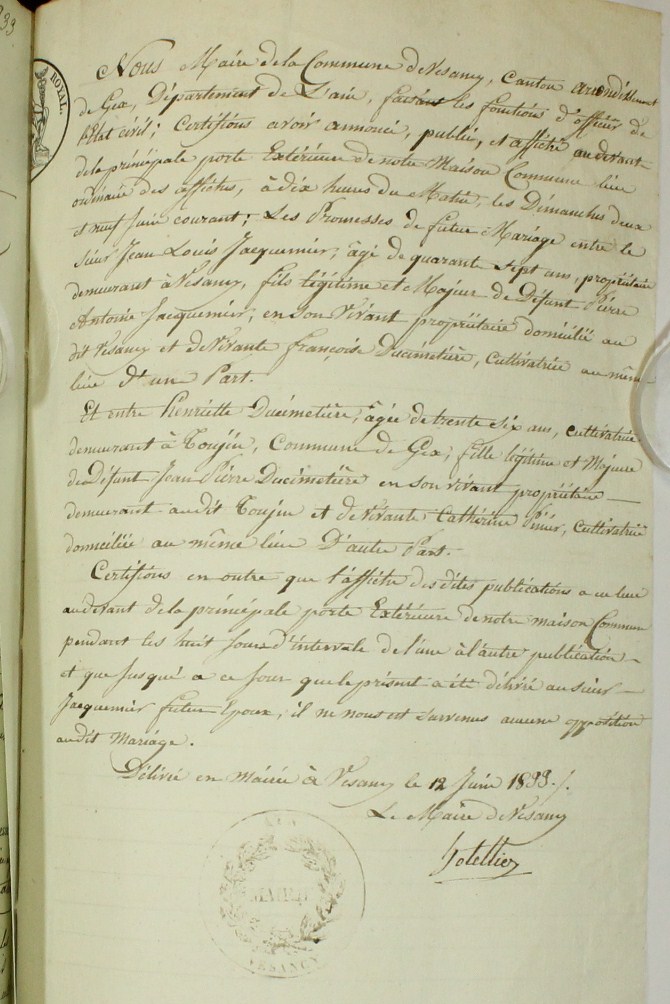 ROYAL.
Nous Maire de la Commune de Vesancy, Canton arrondissement
de Gex, Département de L'ain, faisant les fonctions d'officier de
l'Etat civil; Certifions avoir annoncé, publié, et affiché au devant
de la principale porte Extérieure de notre Maison Commune lieu
ordinaire des affiches, à dix heures du Matin, les Dimanches deux
et neuf Juin courant; Les Promesses de futur Mariage entre le
sieur Jean Louis Jacquemier, âgé de quarante sept ans, propriétaire
demeurant à Vesancy, fils légitime et Majeur de Défunt Pierre
Antoine Jacquemier, en son Vivant propriétaire domicilié au
dit Vesancy et de Vivante françoise Ducimetière, Cultivatrice au même
lieu D'une Part.
Et entre Henriette Ducimetière, âgée de trente six ans, cultivatrice
demeurant à Toujin, Commune de Gex; fille légitime et Majeure
de Défunt Jean Pierre Ducimetière en son vivant propriétaire
demeurant au dit Toujin et de Vivante Catherine, Cultivatrice
domiciliée au même lieu D'autre Part.
Certifions en outre que l'affiche des dites publications a eu lieu
au devant de la principale porte Extérieure de notre maison Commune
pendant les huit Jours d'intervale de l'une à l'autre publication
et que Jusqu'à ce Jour que le présent a été délivré au sieur
Jacquemier futur Epoux, il ne nous est survenus aucune opposition
audit Mariage.
Délivré en Mairie à Vesancy le 12 Juin 1833./.
Le Maire de Vesancy
MAIRIE
VESANCY